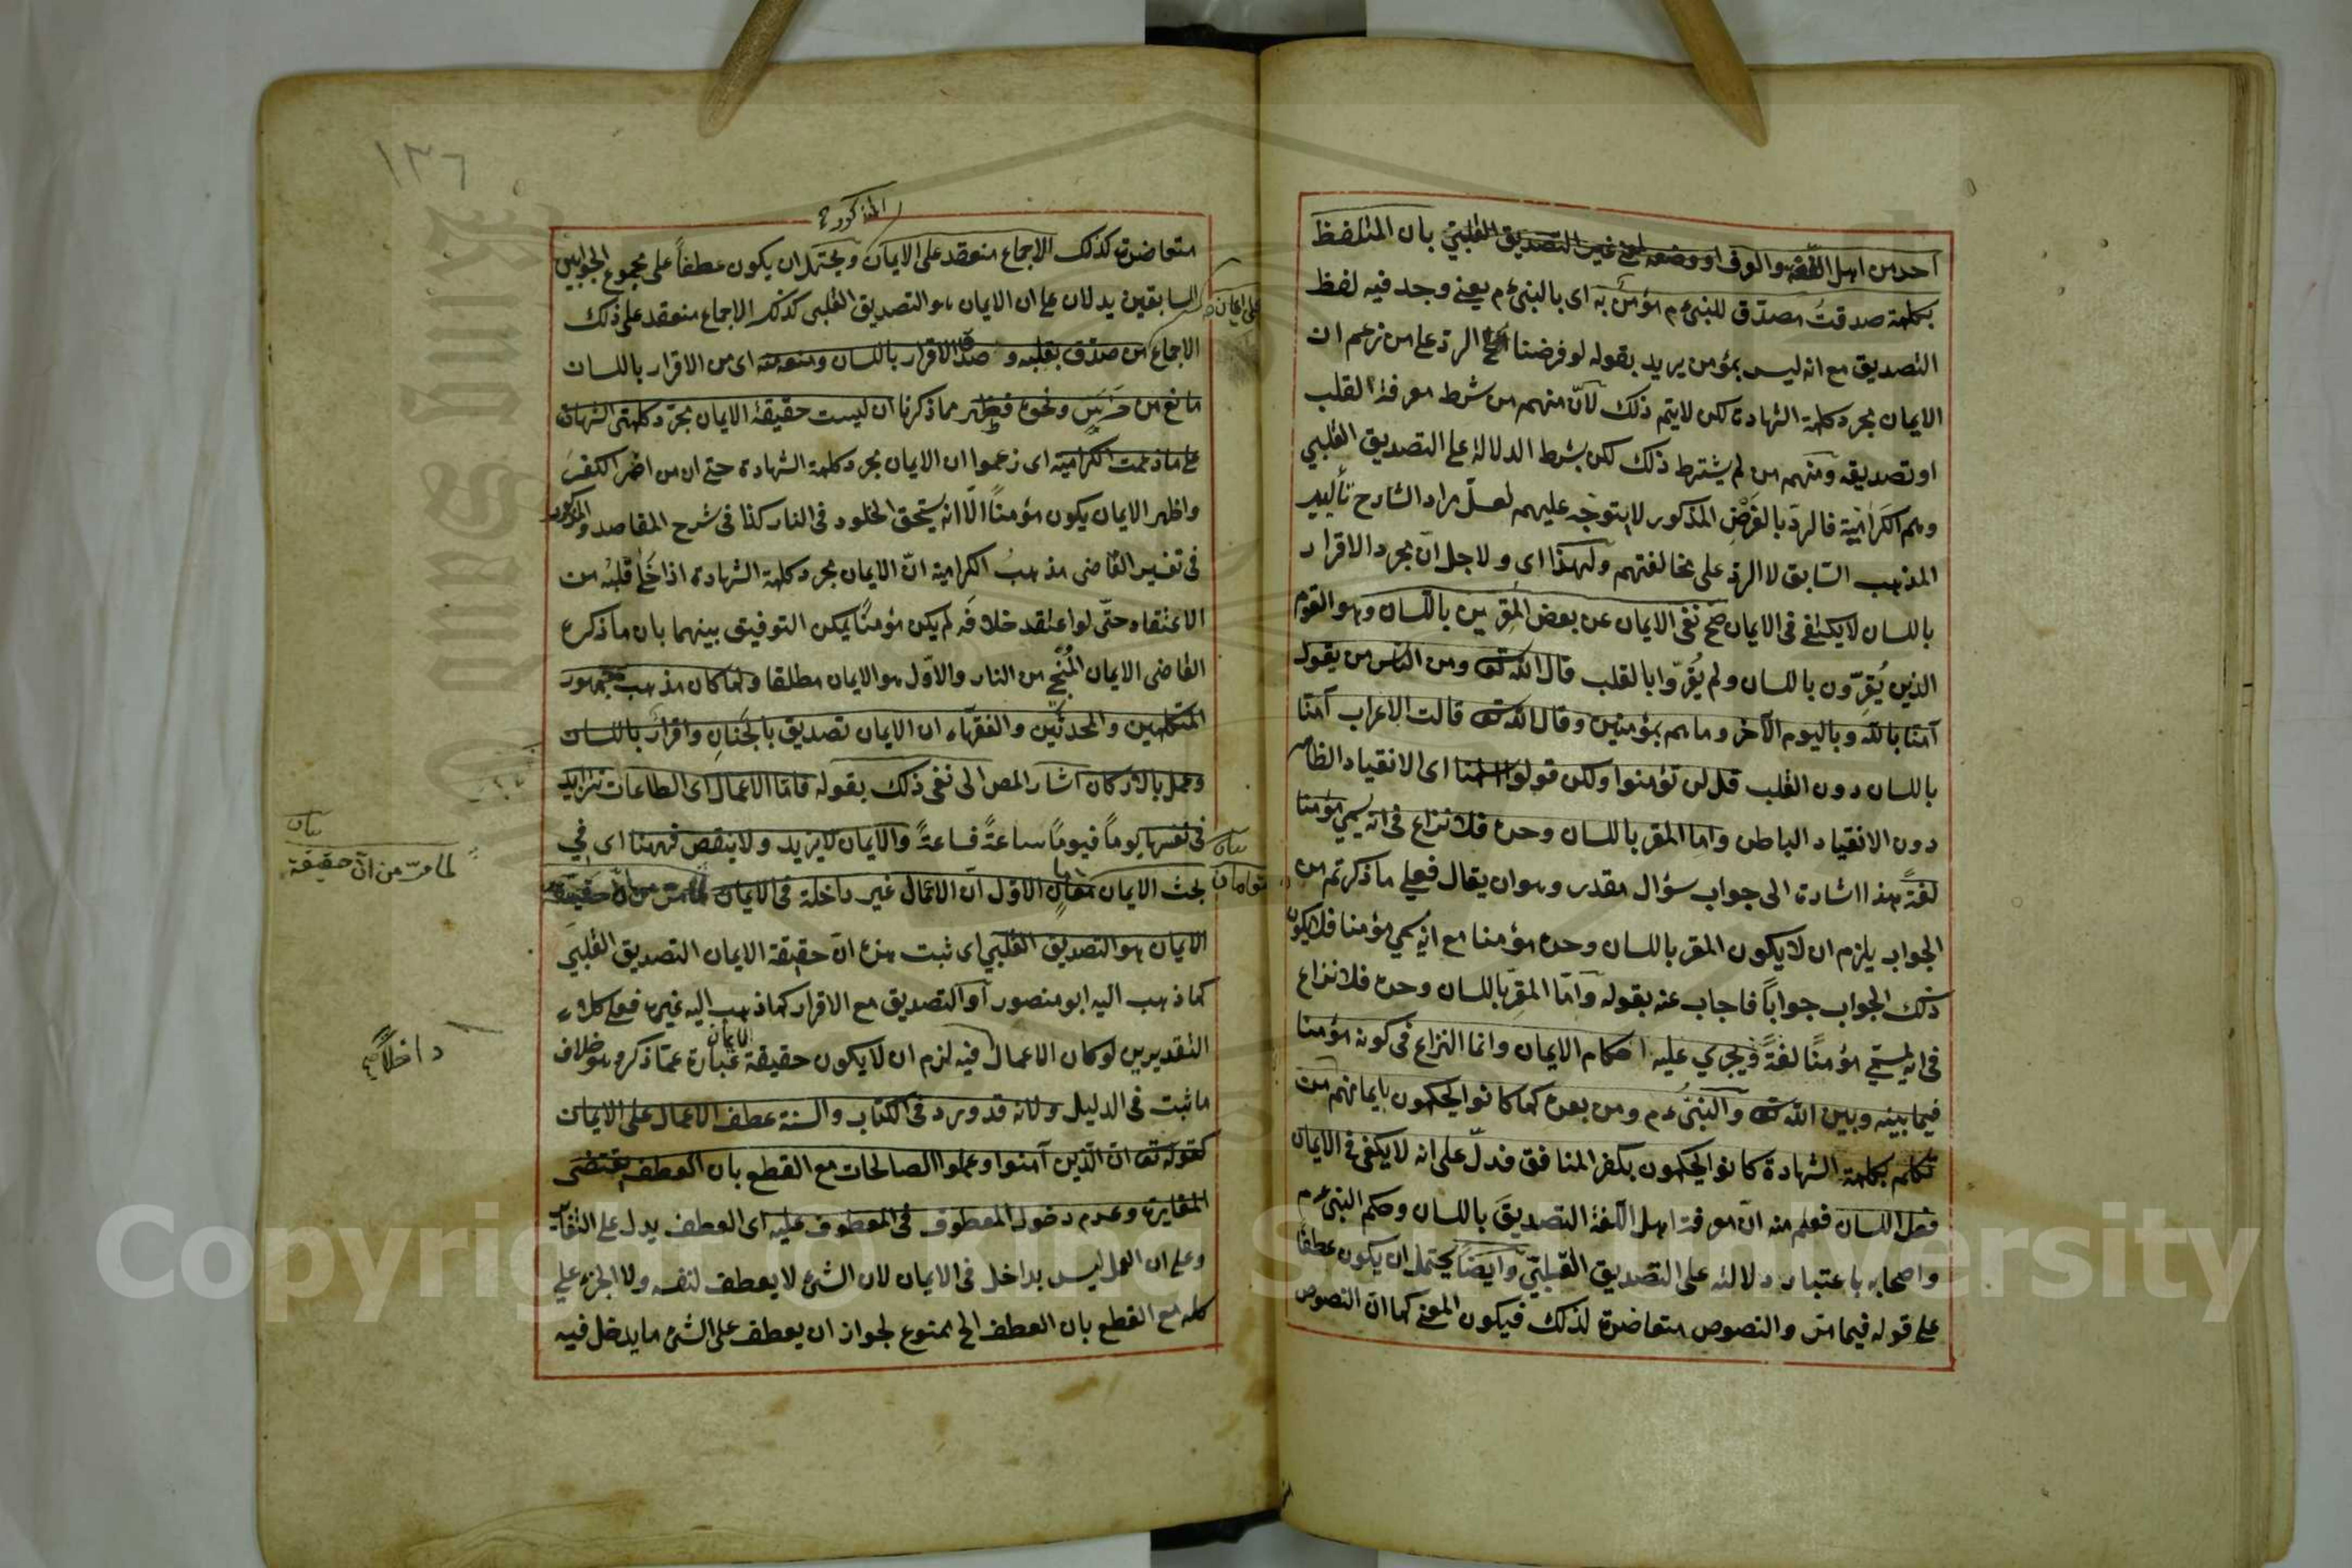 احد من اهل اللغة والعرف او وضعه لمعنى غير التصديق القلبي بان المتلفظ
بكلمة صدقت مصدق للنبي ءم مؤمن به اى بالنبي ءم يعنى وجد فيه لفظ
التصديق مع انه ليس بمؤمن يريد بقوله لو فرضنا الخ الرد على من زعم ان
الايمان مجرد كلمة الشهادة لكن لا يتم ذلك لأنّ منهم من شرط معرفة القلب
او تصديقه ومنهم من لم يشترط ذلك لكن بشرط الدلالة على التصديق القلبي
وهم الكرامية فالرد بالفرض المذكور لا يتوجه عليهم لعلّ مراد الشارح تأييد
المذهب السابق لا الرد على مخالفتهم ولهذا اى ولاجل انّ مجرد الاقرار
باللسان لا يكفى فى الايمان صح نفى الايمان عن بعض المقرين باللسان وهو القوم
الذين يُقِرّون باللسان ولم يُقِرّوا بالقلب قال الله تع ومن الناس من يقول
آمنّا بالله وباليوم الآخر وما هم بمؤمنين وقال الله تع قالت الاعراب آمنّا
باللسان دون القلب قل لن تؤمنوا ولكن قولوا اسلمنا اى الانقياد الظاهر
دون الانقياد الباطن واما المقر باللسان وحده فلا نزاع فى انه يسمي مؤمنا
لغةً هذا اشارة الى جواب سؤال مقدر وهو ان يقال فعلى ما ذكرتم من
الجواب يلزم ان لا يكون المقر باللسان وحده مؤمنا مع انه سمي مؤمنا فلا يكون
ذلك الجواب جواباً فاجاب عنه بقوله وأمّا المقِرّ باللسان وحده فلا نزاع
فى انه يسمّي مؤمنًا لغةً ويجري عليه احكام الايمان وانما النزاع فى كونه مؤمنا
فيما بينه وبين الله تع والنبيُ ءم ومن بعده كما كانوا يحكمون بايمانهم من
تكلم بكلمة الشهادة كانوا يحكمون بكفر المنافق فدلّ على انه لا يكفى فى الايمان
فعل اللسان فعلم منه انّ معرفة اهل اللّغة التصديقَ باللسان وحكم النبي ءم
واصحابه باعتبار دلالته على التصديق القلبيّ وايضاً يحتمل ان يكون عطفا
على قوله فيما مرّ والنصوص متعاضدة لذلك فيكون المعنى كما ان النصوص
١٣٦
المذكور
متعاضدة كذلك الاجماع منعقد على الايمان ويحتمل ان يكون عطفاً على مجموع الجوابين
السابقين يدلان على ان الايمان هو التصديق القلبى كذلك الاجماع منعقد على ذلك
على ايمان
الاجماع من صدّق بقلبه وقصد الاقرار باللسان ومنعه منه اى من الاقرار باللسان
مانع من خَرَسٍ ونحوه فظهر مما ذكرنا ان ليست حقيقة الايمان مجرّد كلمتى الشهادة
على ما زعمت الكرامية اى زعموا ان الايمان مجرد كلمة الشهادة حتى ان من اضمر الكفرَ
واظهر الايمان يكون مؤمناً الّا انه يستحق الخلود فى النار كذا فى شرح المقاصد والمذكور
فى تفسير القاضى مذهبُ الكرامية انّ الايمان مجرد كلمة الشهادة اذا خَلَا قلبُه من
الاعتقاد حتّى لو اعتقد خلافَه لم يكن مؤمنًا يمكن التوفيق بينهما بان ما ذكره
القاضى الايمان المُنْجِي من النار والاوّل هو الايمان مطلقا ولما كان مذهب جمهور
المتكلمين والمحدثين والفقهاء ان الايمان تصديق بالجَنَانِ واقرار باللسان
وعمل بالاركان اشار المص الى نفى ذلك بقوله فامّا الاعمال اى الطاعات تتزايد
فى نفسها يوماً فيومًا ساعةً فساعةً والايمان لا يزيد ولا ينقص فههنا اى في
بيان
بحث الايمان مقامانِ الاوّل انّ الاعمال غير داخلة فى الايمان لما مر من انّ حقيقة
بيان
لما مرّ من انّ حقيقة
الايمان هو التصديق القلبي اى ثبت منه انّ حقيقة الايمان التصديق القلبي
كما ذهب اليه ابو منصور او التصديق مع الاقرار كما ذهب اليه غيره فعلى كلا
التقديرين لو كان الاعمال فيه لزم ان لا يكون حقيقة الايمان عبارة عمّا ذكر وهو خلاف
داخلاً صح
ما ثبت فى الدليل ولانه قد ورد فى الكتاب والسنة عطف الاعمال على الايمان
كقوله تع ان الّذين آمنوا وعملوا الصالحات مع القطع بان العطف يقتضى
المغايرة وعدم دخول المعطوف فى المعطوف عليه اى العطف يدل على التغاير
وعلى ان العمل ليس بداخل فى الايمان لان الشئ لا يعطف لنفسه ولا الجزء علي
كله مع القطع بان العطف الخ ممنوع لجواز ان يعطف على الشئ ما يدخل فيه
Copyright © King Saud University